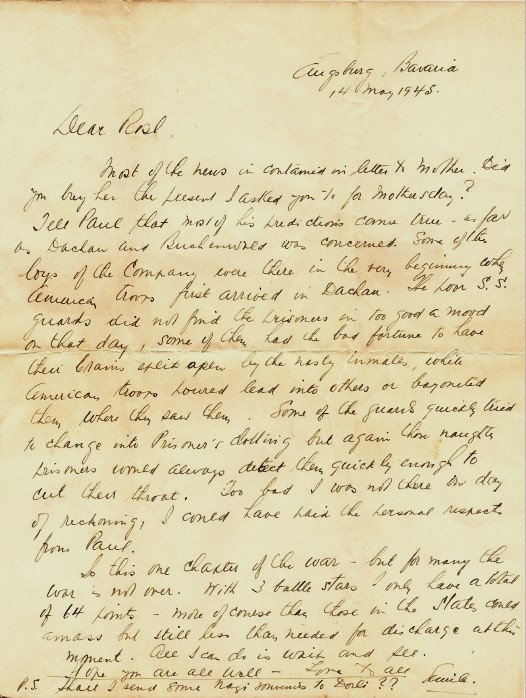 Augsburg, Bavaria
14 May 1945.
Dear Rosl,
Most of the news in contained in letter to Mother. Did
you buy her the present I asked you to for Mothersday?
Tell Paul that most of his predictions came true - as far
as Dachau and Buchenwald was concerned. Some of the
boys of the Company were there in the very beginning when
American troops first arrived in Dachau. The poor S.S.
guards did not find the prisoners in too good a mood
on that day, some of them had the bad fortune to have
their brains split open by the nasty inmates, while
American troops poured lead into others or bayoneted
them where they saw them. Some of the guards quickly tried
to change into Prisoner's clothing but again those naughty
prisoners would always detect them quickly enough to
cut their throat. Too bad I was not there on day
of reckoning, I could have paid the personal respects
from Paul.
Is this one chapter of the war - but for many the
war is not over. With 3 battle stars I only have a total
of 64 points - more of course than those in the States could
amass but still less than needed for discharge at this
moment. All I can do is wait and see.
Hope you are all well - Love to all
P.S. Shall I send some Nazi souvenirs to Dorli ??